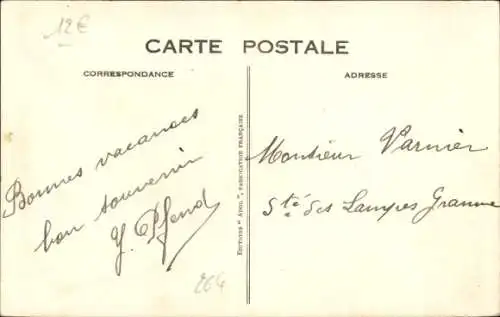 12€
CARTE POSTALE
CORRESPONDANCE
ADRESSE
Bonnes vacances
bon souvenir
Y. Pfend
264
EDITIONS " ", FABRICATION FRANÇAISE
Monsieur Varnier
Sté des Lampes Gramme